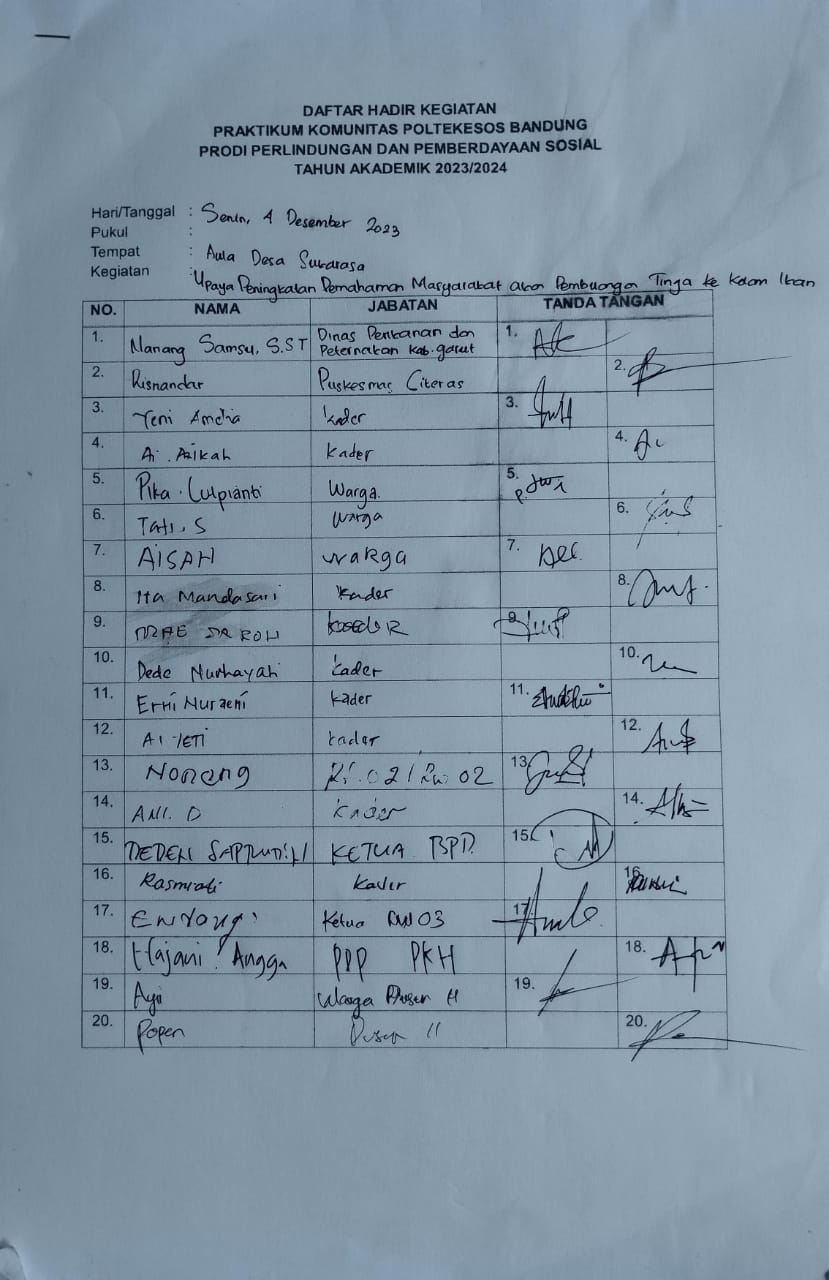 DAFTAR HADIR KEGIATAN
PRAKTIKUM KOMUNITAS POLTEKESOS BANDUNG
PRODI PERLINDUNGAN DAN PEMBERDAYAAN SOSIAL
TAHUN AKADEMIK 2023/2024
Hari/Tanggal : Senin, 4 Desember 2023
Pukul :
Tempat : Aula Desa Sukarasa
Kegiatan : Upaya Peningkatan Pemahaman Masyarakat akan Pembuangan Tinja ke Kolam Ikan
NO. NAMA JABATAN TANDA TANGAN
1. Nanang Samsu, S.ST Dinas Perikanan dan Peternakan Kab. garut 1.
2. Risnandar Puskesmas Citeras 2.
3. Yeni Amelia kader 3.
4. Ai. Atikah kader 4.
5. Pika. Lutpianti Warga. 5.
6. Tati. S warga 6.
7. AISAH warga 7.
8. Ita Mandasari kader 8.
9. 9.
10. Dede Nurhayati kader 10.
11. Erni Nuraeni kader 11.
12. AI YETI kader 12.
13. Noneng Rt. 02/Rw 02 13.
14. Ani. D kader 14.
15. DEDEN SAPRUDIN KETUA BPD. 15.
16. Rasmiati kader 16.
17. ENYONG. Ketua RW 03 17.
18. Hajani Angga PPP PKH 18.
19. Ayi Warga Dusun II 19.
20. Popen Dusun II 20.